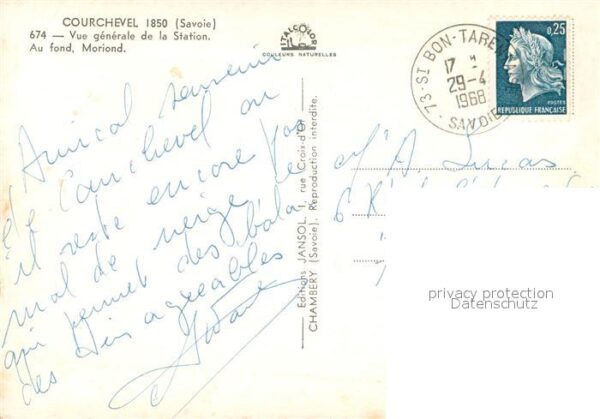 COURCHEVEL 1850 (Savoie)
674 — Vue générale de la Station.
Au fond, Moriond.
ITALCOLOR
COULEURS NATURELLES
Amical souvenir
de Courchevel où
il reste encore pas
mal de neige,
qui permet des
des agréables
Editions JANSOL, 1, rue Croix-d'Or
CHAMBERY (Savoie). Reproduction interdite.
73-ST BON-TARE
17 H
29-4
1968
SAVOIE
0,25
POSTES
REPUBLIQUE FRANÇAISE
A. Lucas
6 R
privacy protection
Datenschutz